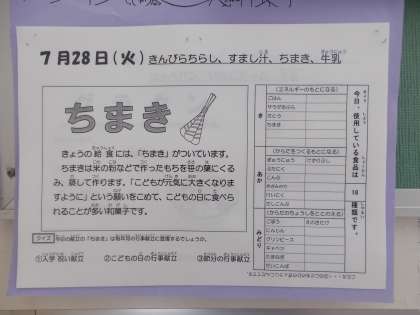 7月28日(火) きんぴらちらし、すまし汁、ちまき、牛乳
ちまき
きょうの給食には、「ちまき」がついています。
ちまきは米の粉などで作ったもちを笹の葉にくる
み、蒸して作ります。「こどもが元気に大きくなりま
すように」という願いをこめて、こどもの日に食べ
られることが多い和菓子です。
クイズ 今日の献立の「ちまき」は毎年何の行事献立に登場するでしょうか。
①入学祝い献立 ②こどもの日の行事献立 ③節分の行事献立
今日、使用している食品は 18 種類です。
き
(エネルギーのもとになる)
ごはん
さとう
ちまき
あか
(からだをつくるもとになる)
ぎゅうにゅう
とりにく
みどり
(からだのちょうしをととのえる)
ごぼう
にんじん
グリンピース
キャベツ
たまねぎ